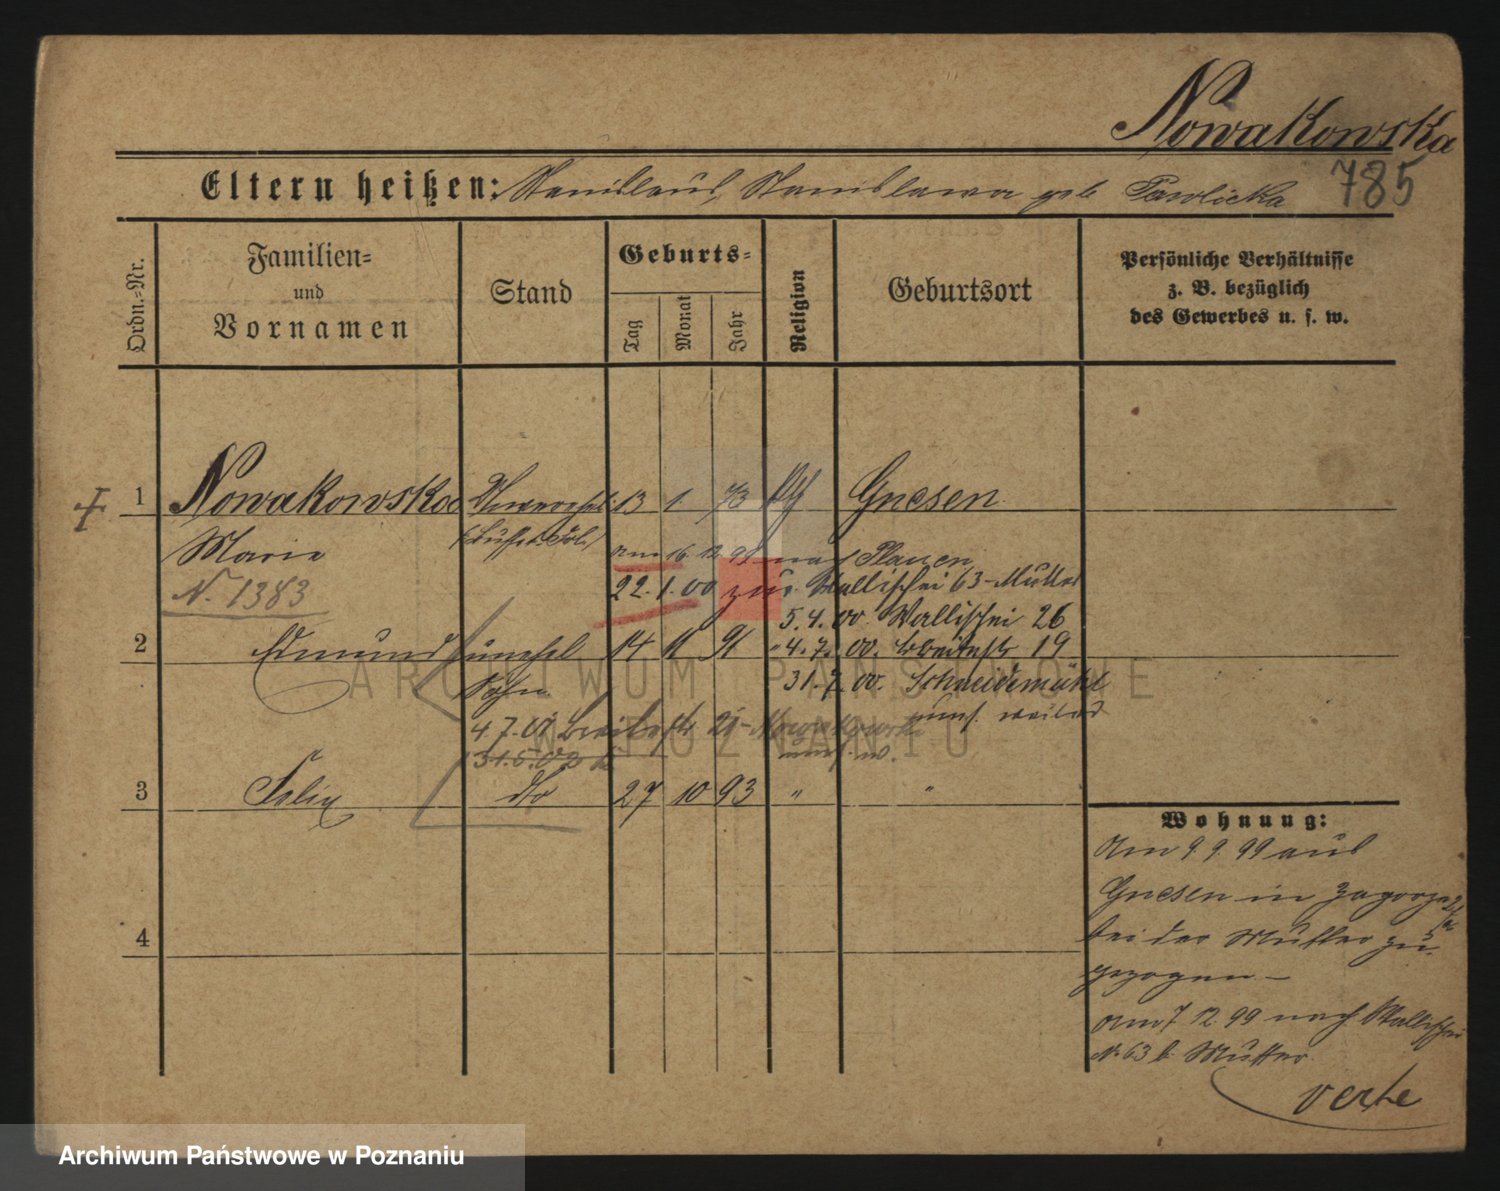 Nowakowska
785
Eltern heißen: Stanislaus, Stanislawa geb Pawlicka
Ordn.-Nr.
Familien-
und
Vornamen
Stand
Geburts-
Tag
Monat
Jahr
Religion
Geburtsort
Persönliche Verhältnisse
z. B. bezüglich
des Gewerbes u. s. w.
1 Nowakowska 13 1. 73 Gnesen
Marie
am 16. 12. 99 nach Plauen
N. 1383
22. 1. 00 zur. Wallischei 63 - Mutter
5. 4. 00. Wallischei 26
2 Edmund unehel 14 11 91
" 4. 7. 00. Breitestr 19
Sohn
31. 7. 00. Schneidemühl
4. 7. 01 Breitestr 21 - Nowakowski
3 Felix dto 27 10 93 " "
4
Wohnung:
Am 9. 9. 99 aus
Gnesen in Zagorze
bei der Mutter zu-
gezogen -
am 7 12. 99 nach Wallischei
N. 63 b. Mutter.
verte
ARCHIWUM PAŃSTWOWE
W POZNANIU
Archiwum Państwowe w Poznaniu